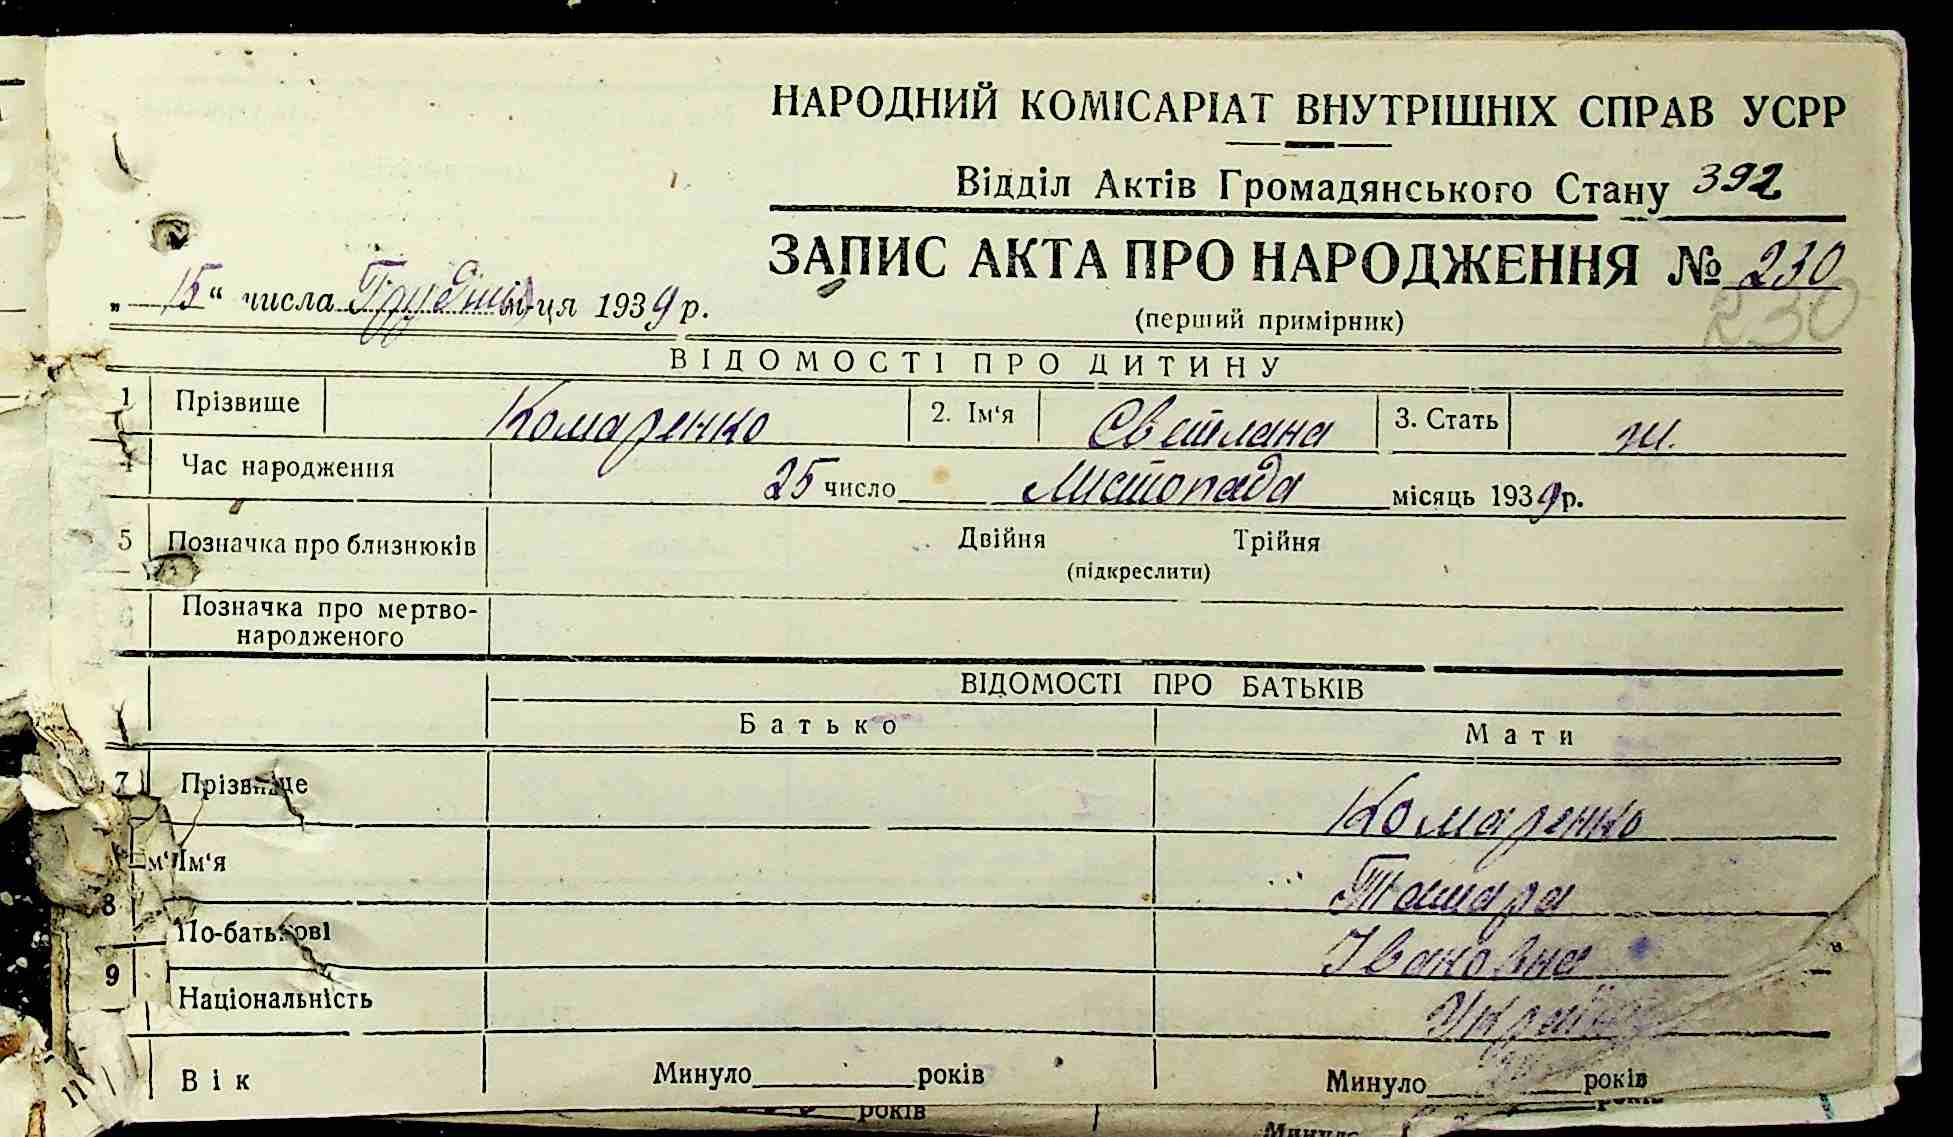 НАРОДНИЙ КОМІСАРІАТ ВНУТРІШНІХ СПРАВ УСРР
Відділ Актів Громадянського Стану 392
ЗАПИС АКТА ПРО НАРОДЖЕННЯ № 230
230
„ 15 “ числа Грудня м-ця 1939 р.
(перший примірник)
ВІДОМОСТІ ПРО ДИТИНУ
1 Прізвище Комаренко 2. Ім‘я Светлана 3. Стать ж.
4 Час народження 25 число Листопада місяць 1939 р.
5 Позначка про близнюків Двійня Трійня
(підкреслити)
Позначка про мертво-
народженого
ВІДОМОСТІ ПРО БАТЬКІВ
Батько Мати
7 Прізвище Комаренко
Ім‘я Тамара
8 По-батькові Івановна
9 Національність
11 Вік Минуло років Минуло років
років
Минуло років